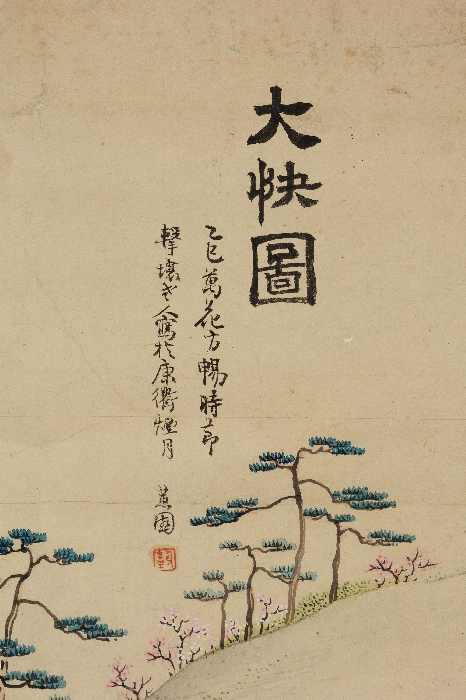 大快圖
乙巳萬花方暢時節
擊壤老人寫於康衢煙月
蕙園